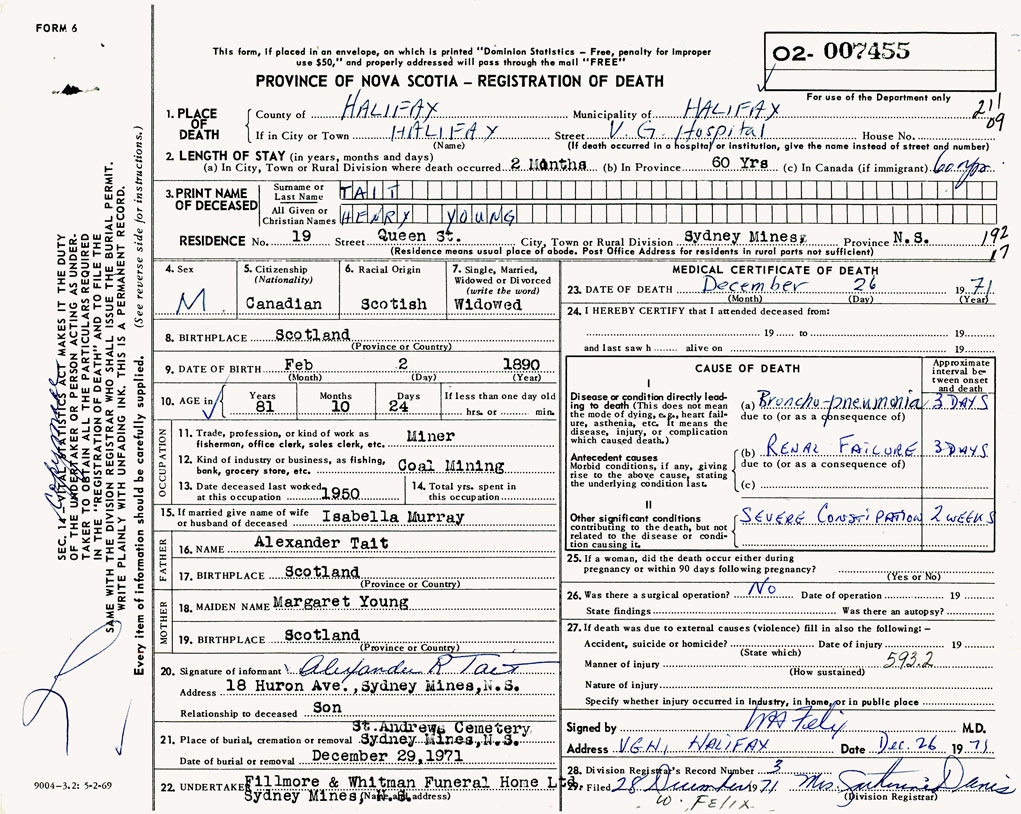 FORM 6
This form, if placed in an envelope, on which is printed "Dominion Statistics – Free, penalty for improper
use $50," and properly addressed will pass through the mail "FREE"
PROVINCE OF NOVA SCOTIA – REGISTRATION OF DEATH
02- 007455
For use of the Department only
211
09
1. PLACE OF DEATH
County of HALIFAX Municipality of HALIFAX
If in City or Town HALIFAX Street V. G. Hospital House No.
(Name) (If death occurred in a hospital or institution, give the name instead of street and number)
2. LENGTH OF STAY (in years, months and days)
(a) In City, Town or Rural Division where death occurred 2 Months (b) In Province 60 Yrs (c) In Canada (if immigrant) 60 yrs
3. PRINT NAME OF DECEASED
Surname or Last Name TAIT
All Given or Christian Names HENRY YOUNG
RESIDENCE No. 19 Street Queen St. City, Town or Rural Division Sydney Mines, Province N.S.
(Residence means usual place of abode. Post Office Address for residents in rural parts not sufficient)
192
17
4. Sex
M
5. Citizenship
(Nationality)
Canadian
6. Racial Origin
Scotish
7. Single, Married,
Widowed or Divorced
(write the word)
Widowed
8. BIRTHPLACE Scotland
(Province or Country)
9. DATE OF BIRTH Feb 2 1890
(Month) (Day) (Year)
10. AGE in
Years Months Days If less than one day old
81 10 24 hrs. or min.
OCCUPATION
11. Trade, profession, or kind of work as
fisherman, office clerk, sales clerk, etc. Miner
12. Kind of industry or business, as fishing,
bank, grocery store, etc. Coal Mining
13. Date deceased last worked
at this occupation 1950
14. Total yrs. spent in
this occupation
15. If married give name of wife
or husband of deceased Isabella Murray
FATHER
16. NAME Alexander Tait
17. BIRTHPLACE Scotland
(Province or Country)
MOTHER
18. MAIDEN NAME Margaret Young
19. BIRTHPLACE Scotland
(Province or Country)
20. Signature of informant Alexander R Tait
Address 18 Huron Ave.,Sydney Mines,N.S.
Relationship to deceased Son
St.Andrews Cemetery
21. Place of burial, cremation or removal Sydney Mines,N.S.
Date of burial or removal December 29,1971
22. UNDERTAKER Fillmore & Whitman Funeral Home Ltd.
Sydney Mines, N.S.
(Name and address)
MEDICAL CERTIFICATE OF DEATH
23. DATE OF DEATH December 26 1971
(Month) (Day) (Year)
24. I HEREBY CERTIFY that I attended deceased from:
19 to 19
and last saw h alive on 19
CAUSE OF DEATH
Approximate
interval be-
tween onset
and death
I
Disease or condition directly lead-
ing to death (This does not mean
the mode of dying, e.g., heart fail-
ure, asthenia, etc. It means the
disease, injury, or complication
which caused death.)
(a) Broncho-pneumonia 3 DAYS
due to (or as a consequence of)
Antecedent causes
Morbid conditions, if any, giving
rise to the above cause, stating
the underlying condition last.
(b) RENAL FAILURE 3 DAYS
due to (or as a consequence of)
(c)
II
Other significant conditions
contributing to the death, but not
related to the disease or condi-
tion causing it.
SEVERE CONSTIPATION 2 WEEKS
25. If a woman, did the death occur either during
pregnancy or within 90 days following pregnancy?
(Yes or No)
26. Was there a surgical operation? No Date of operation 19
State findings Was there an autopsy?
27. If death was due to external causes (violence) fill in also the following: –
Accident, suicide or homicide? Date of injury 19
(State which)
Manner of injury 593.2
(How sustained)
Nature of injury
Specify whether injury occurred in Industry, in home, or in public place
Signed by WA Felix M.D.
Address V.G.H, HALIFAX Date Dec. 26 1971
28. Division Registrar's Record Number 3
29. Filed 28 December 1971 Mrs. Davis
(Division Registrar)
W. FELIX
SEC. 14 – VITAL STATISTICS ACT MAKES IT THE DUTY
OF THE UNDERTAKER OR PERSON ACTING AS UNDER-
TAKER TO OBTAIN ALL THE PARTICULARS REQUIRED
IN THE "REGISTRATION OF DEATH" AND TO FILE THE
SAME WITH THE DIVISION REGISTRAR WHO SHALL ISSUE THE BURIAL PERMIT.
WRITE PLAINLY WITH UNFADING INK. THIS IS A PERMANENT RECORD.
Every item of information should be carefully supplied. (See reverse side for instructions.)
9004–3.2: 5-2-69